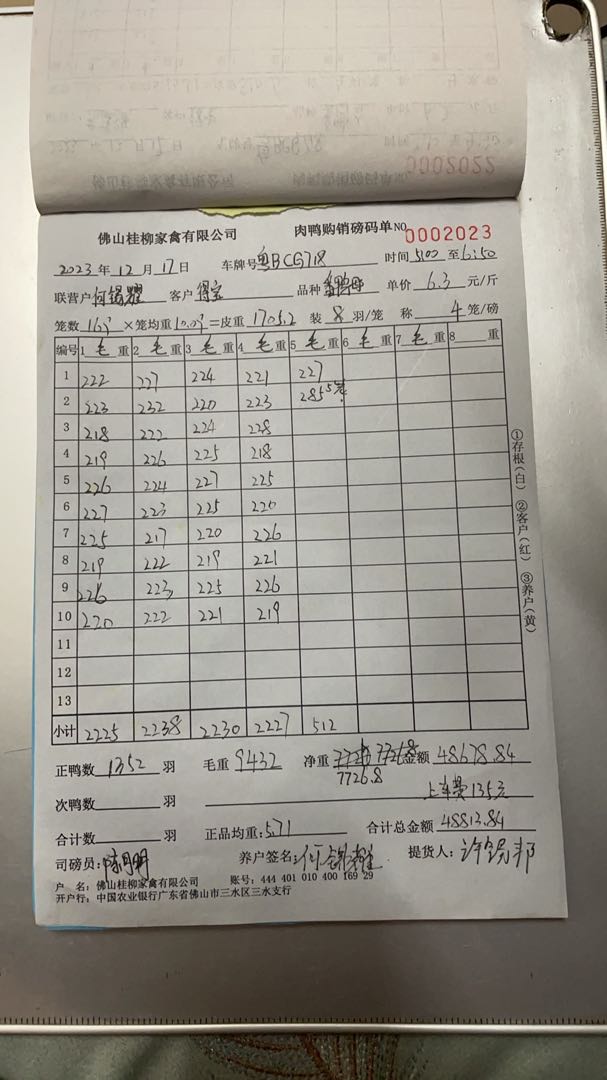 佛山桂柳家禽有限公司 肉鸭购销磅码单 NO 0002023
2023年12月17日 车牌号粤BCG718 时间5:00至6:50
联营户何锡耀 客户得宝 品种 单价6.3元/斤
笼数169×笼均重10.09=皮重1705.2 装8羽/笼 称4笼/磅
编号 1毛重 2毛重 3毛重 4毛重 5毛重 6毛重 7毛重 8重
1 222 227 224 221 227
2 223 232 220 223 285 5笼
3 218 222 224 228
4 219 226 225 218
5 226 224 227 225
6 227 223 225 220
7 225 217 220 226
8 219 222 219 221
9 226 223 225 226
10 220 222 221 219
11
12
13
小计 2225 2238 2230 2227 512
正鸭数1352羽 毛重9432 净重 7726.8 金额48678.84
7726.8
次鸭数 羽 上车费135元
合计数 羽 正品均重:5.71 合计总金额48813.84
司磅员: 养户签名: 提货人:
户 名:佛山桂柳家禽有限公司 账号:444 401 010 400 169 29
开户行:中国农业银行广东省佛山市三水区三水支行
①存根(白) ②客户(红) ③养户(黄)
0002022